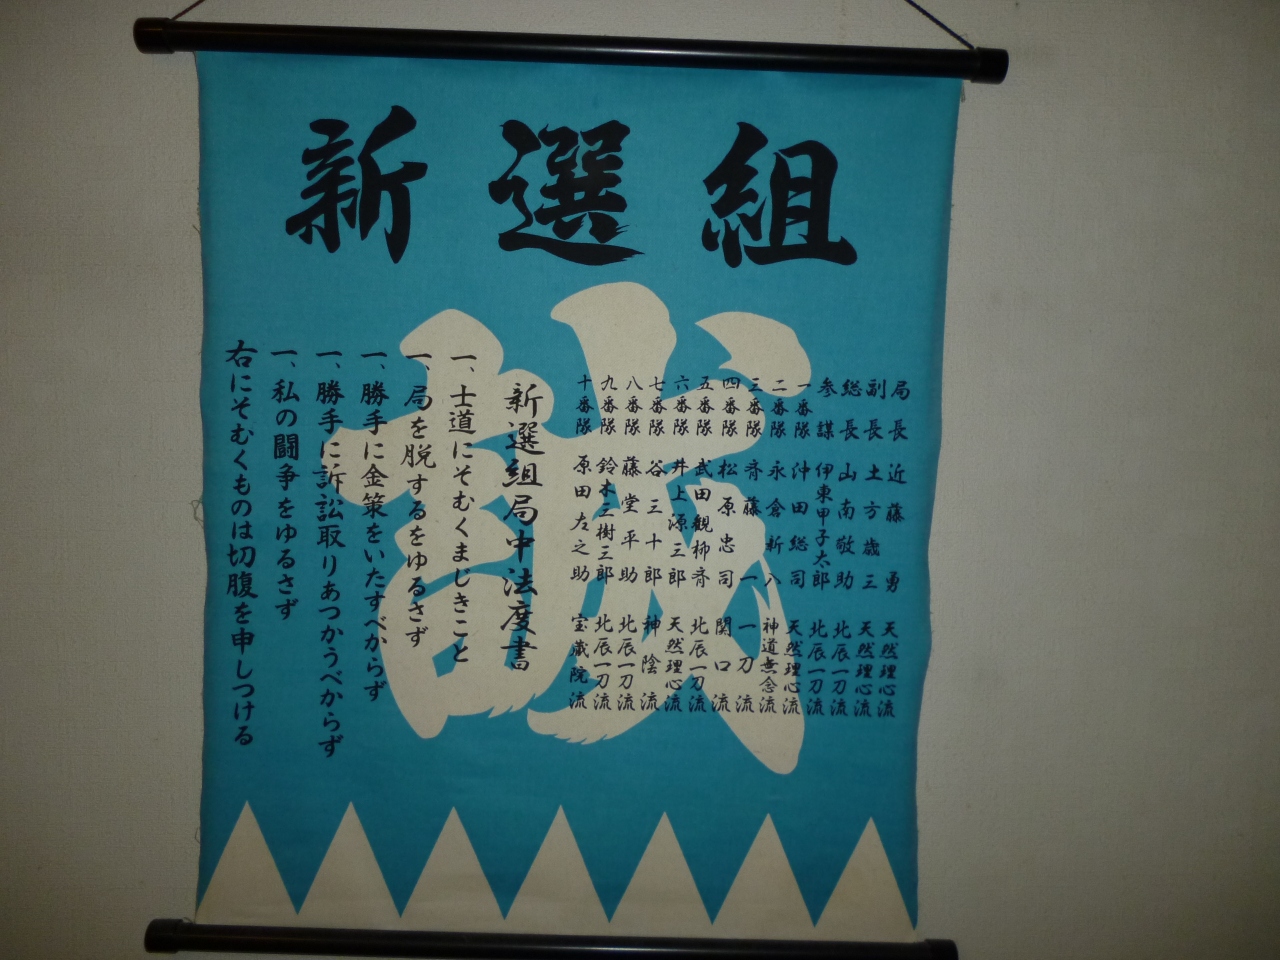 新選組
誠
局長 近藤勇 天然理心流
副長 土方歳三 天然理心流
総長 山南敬助 北辰一刀流
参謀 伊東甲子太郎 北辰一刀流
一番隊 沖田総司 天然理心流
二番隊 永倉新八 神道無念流
三番隊 斉藤一 一刀流
四番隊 松原忠司 関口流
五番隊 武田観柳斉 北辰一刀流
六番隊 井上源三郎 天然理心流
七番隊 谷三十郎 神陰流
八番隊 藤堂平助 北辰一刀流
九番隊 鈴木三樹三郎 北辰一刀流
十番隊 原田左之助 宝蔵院流
新選組局中法度書
一、士道にそむくまじきこと
一、局を脱するをゆるさず
一、勝手に金策をいたすべからず
一、勝手に訴訟取りあつかうべからず
一、私の闘争をゆるさず
右にそむくものは切腹を申しつける